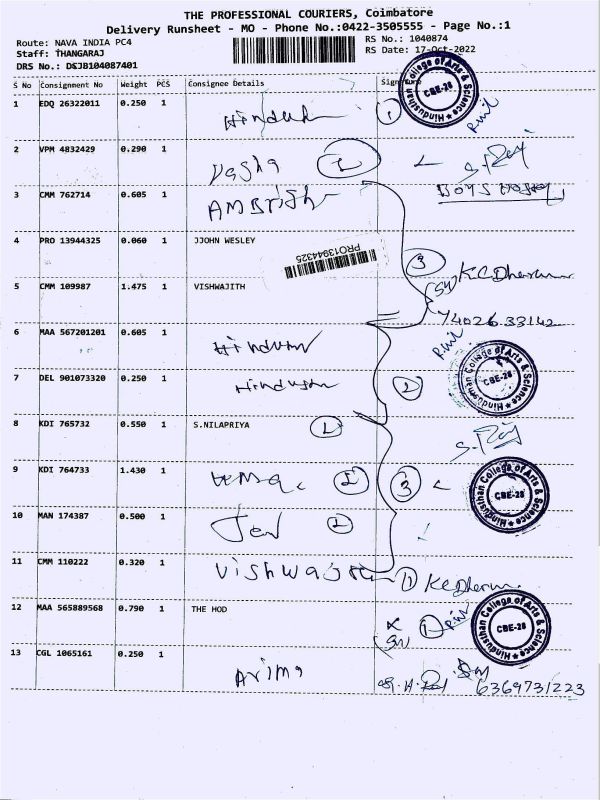 THE PROFESSIONAL COURIERS, Coimbatore
Delivery Runsheet - MO - Phone No.:0422-3505555 - Page No.:1
Route: NAVA INDIA PC4
RS No.: 1040874
Staff: THANGARAJ
RS Date: 17-Oct-2022
DRS No.: D6JB104087401
S No Consignment No Weight PCS Consignee Details Signature
1 EDQ 26322011 0.250 1 1
Hindusthan College of Arts & Science CBE-28
2 VPM 4832429 0.290 1
S. Raj
BOYS HOSTEL
3 CMM 762714 0.605 1 AMBrish
4 PRO 13944325 0.060 1 JJOHN WESLEY
PRO13944325
3
K.C. Dharum
5 CMM 109987 1.475 1 VISHWAJITH
74026 33142
6 MAA 567201201 0.605 1
Hindusthan College of Arts & Science CBE-28
7 DEL 901073320 0.250 1 Hindustan 2
8 KDI 765732 0.550 1 S.NILAPRIYA 1
S. Raj
9 KDI 764733 1.430 1 2 3
Hindusthan College of Arts & Science CBE-28
10 MAN 174387 0.500 1 2
11 CMM 110222 0.320 1 Vishwajith 1 K.C. Dharum
12 MAA 565889568 0.790 1 THE HOD 1
Hindusthan College of Arts & Science CBE-28
13 CGL 1065161 0.250 1
6369731223